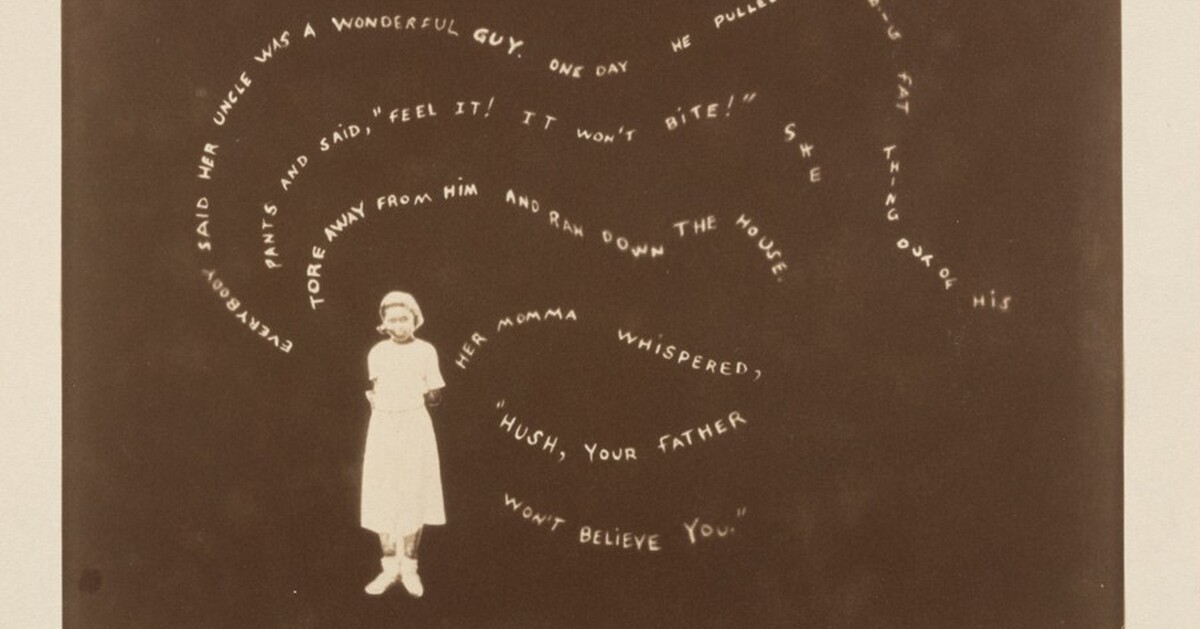 EVERYBODY SAID HER UNCLE WAS A WONDERFUL GUY. ONE DAY HE PULLE
BIG FAT THING OUT OF HIS
PANTS AND SAID, "FEEL IT! IT WON'T BITE!" SHE
TORE AWAY FROM HIM AND RAN DOWN THE HOUSE.
HER MOMMA WHISPERED,
"HUSH, YOUR FATHER
WON'T BELIEVE YOU."